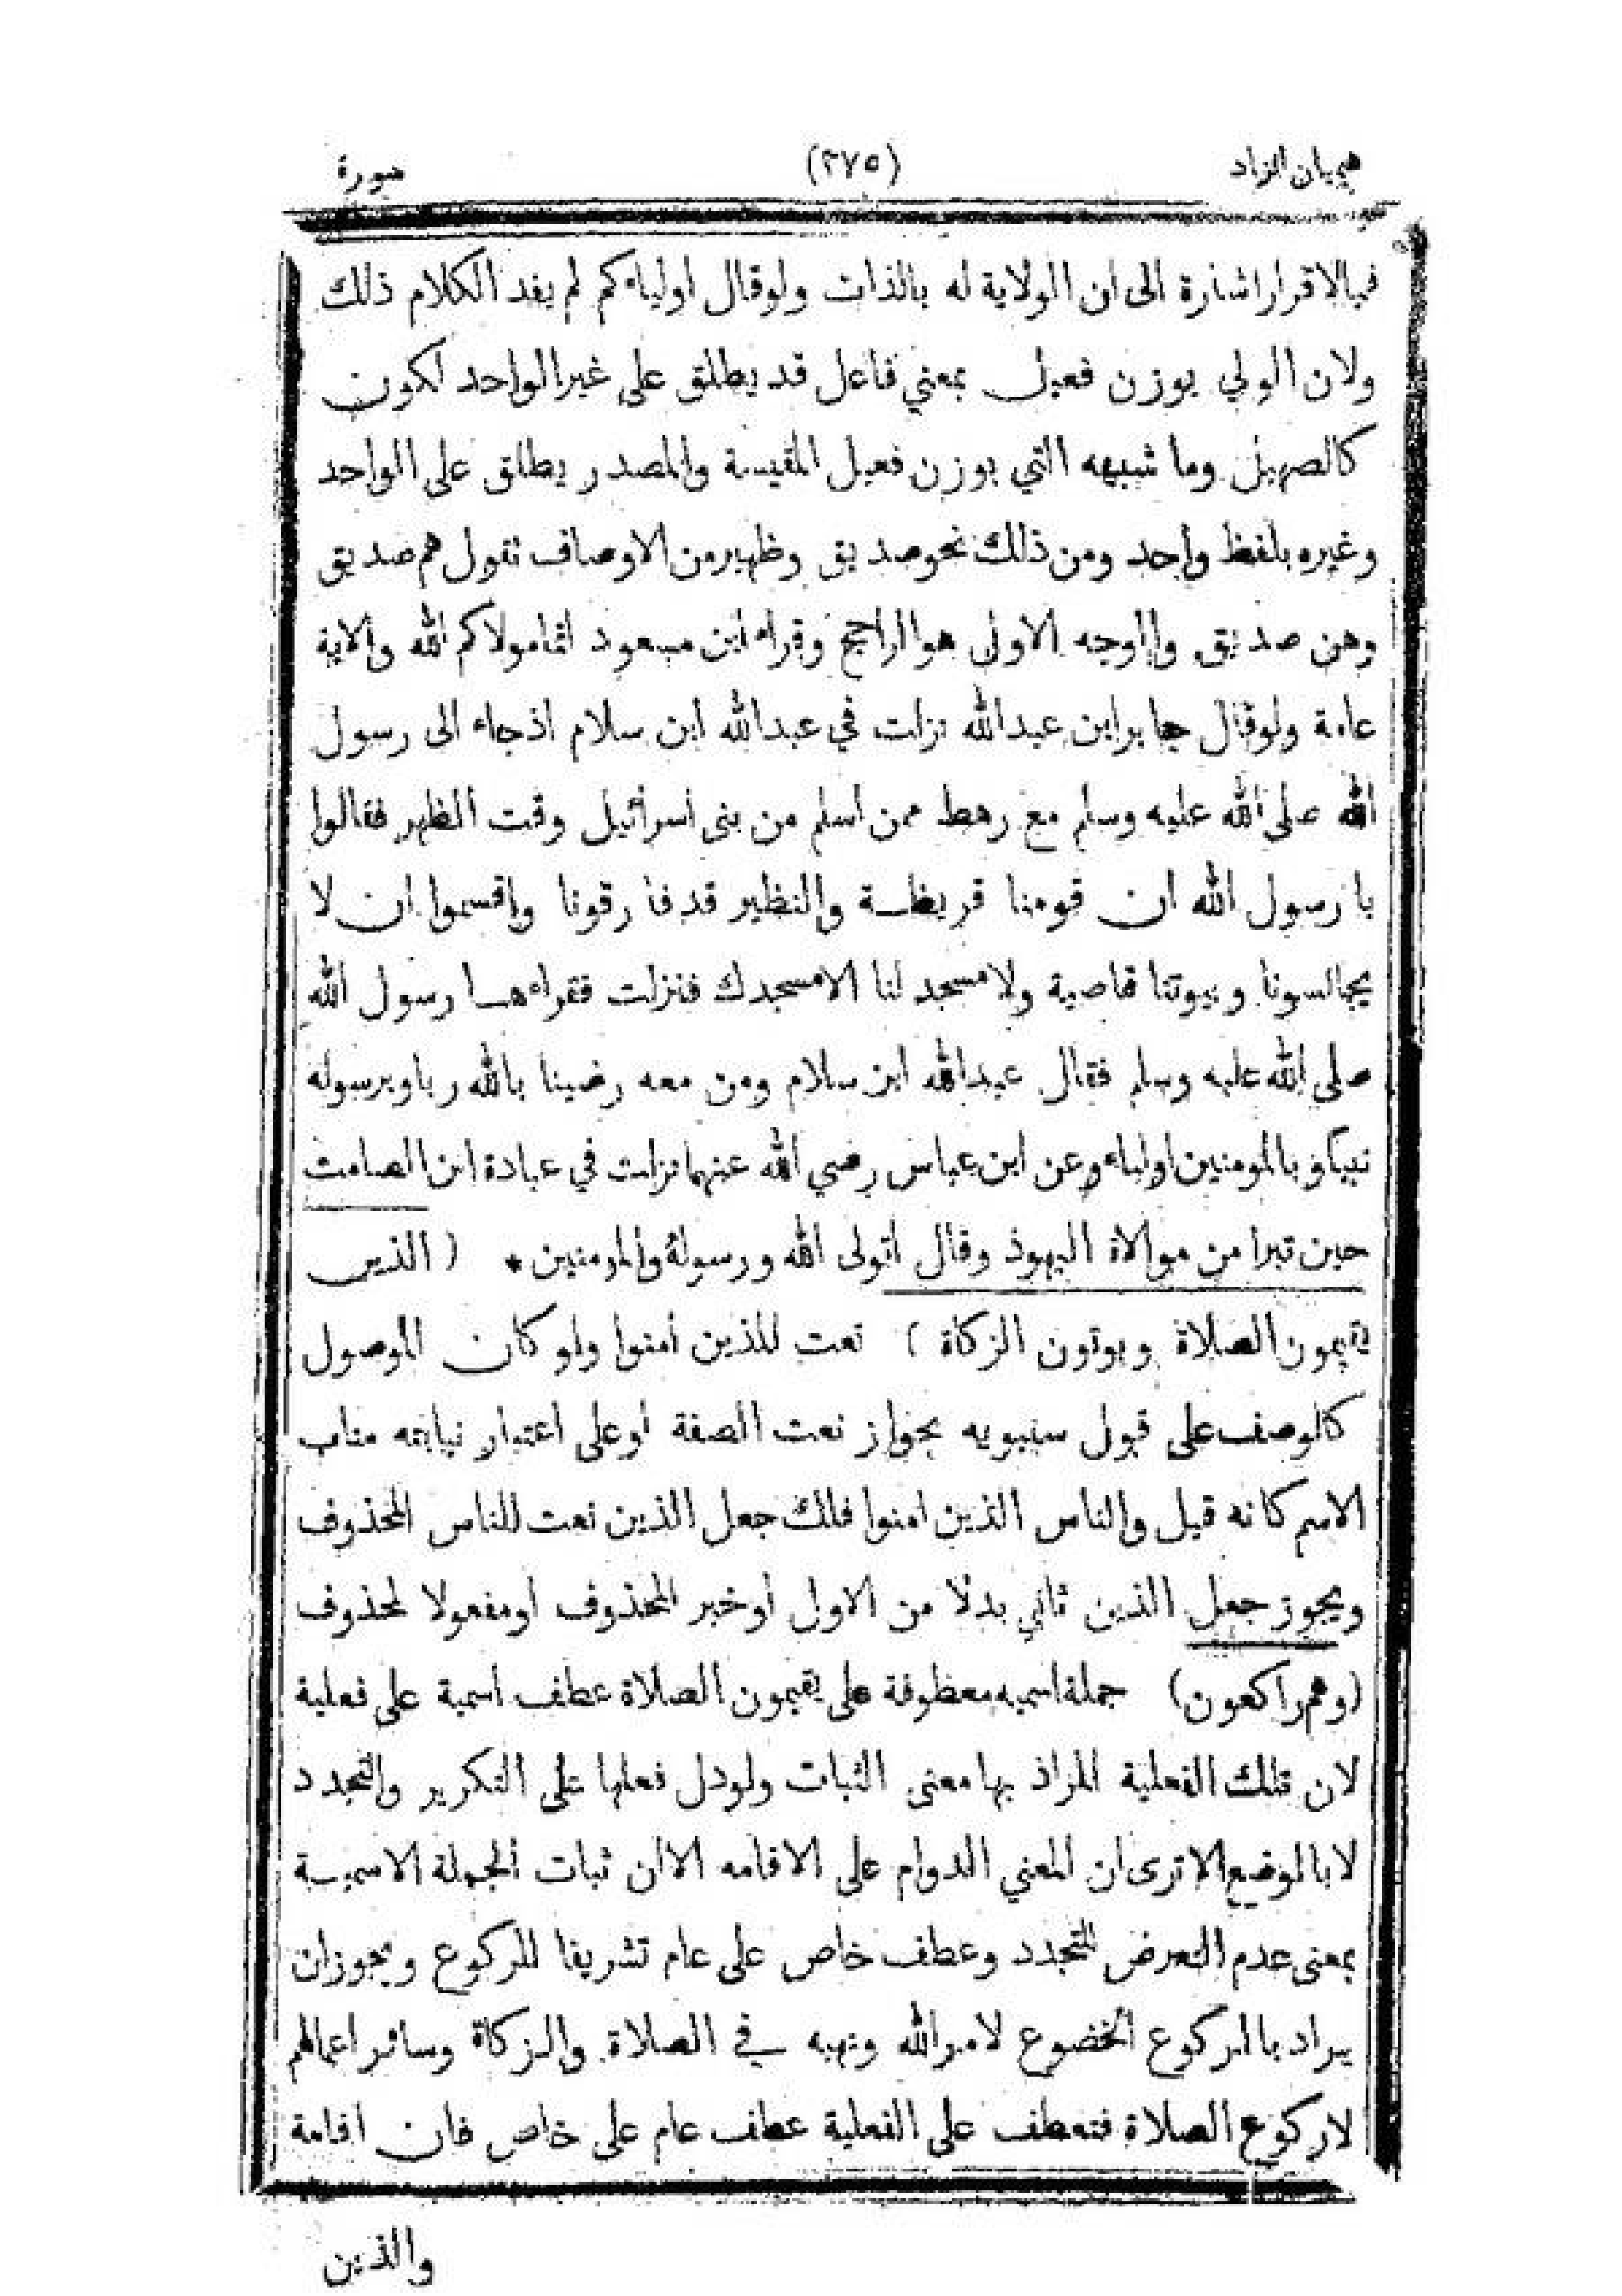 هيميان الزاد (٢٧٥) سورة
فبالاقرار اشارة الى ان الولاية له بالذات ولوقال اولياءكم لم يفد الكلام ذلك
ولان الولي بوزن فعيل بمعني فاعل قد يطلق على غير الواحد لكون
كالصهيل وما شبهه التي بوزن فعيل المقيسة والمصدر يطلق على الواحد
وغيره بلفظ واحد ومن ذلك نحو صديق وظهير من الاوصاف تقول هم صديق
وهن صديق والوجه الاولى هو الراجح وقراء ابن مسعود انما مولاكم الله والاية
عامة ولوقال جابر ابن عبدالله نزلت في عبدالله ابن سلام اذ جاء الى رسول
الله صلى الله عليه وسلم مع رهط ممن اسلم من بنى اسرائيل وقت الظهر فقالوا
يا رسول الله ان قومنا قريظة والنظير قد فارقونا واقسموا ان لا
يجالسونا وبيوتنا قاصية ولا مسجد لنا الا مسجدك فنزلت فقراءها رسول الله
صلى الله عليه وسلم فقال عبدالله ابن سلام ومن معه رضينا بالله ربا وبرسوله
نبيا وبالمومنين اولياء وعن ابن عباس رضي الله عنهما نزلت في عبادة ابن الصامت
حين تبرا من موالاة اليهوذ وقال اتولى الله ورسوله والمومنين * ( الذين
يقيمون الصلاة ويوتون الزكاة ) نعت للذين امنوا ولو كان الموصول
كالوصف على قول سيبويه بجواز نعت الصفة أو على اعتبار نيابته مناب
الاسم كانه قيل والناس الذين امنوا فلك جعل الذين نعت للناس المحذوف
ويجوز جعل الذين ثاني بدلا من الاول أو خبر المحذوف او مفعولا لمحذوف
(وهم راكعون) جملة اسميه معطوفة على يقيمون الصلاة عطف اسمية على فعلية
لان تلك الفعلية المراذ بها معنى الثبات ولودل فعلها على التكرير والتجدد
لا بالوضع الا ترى ان المعني الدوام على الاقامه الا ان ثبات الجملة الاسمية
بمعنى عدم التعرض للتجدد وعطف خاص على عام تشريفا للركوع ويجوز ان
يراد بالركوع الخضوع لامر الله ونهيه في الصلاة والزكاة وسائر اعمالهم
لاركوع الصلاة فتعطف على الفعلية عطف عام على خاص فان اقامة
والذين